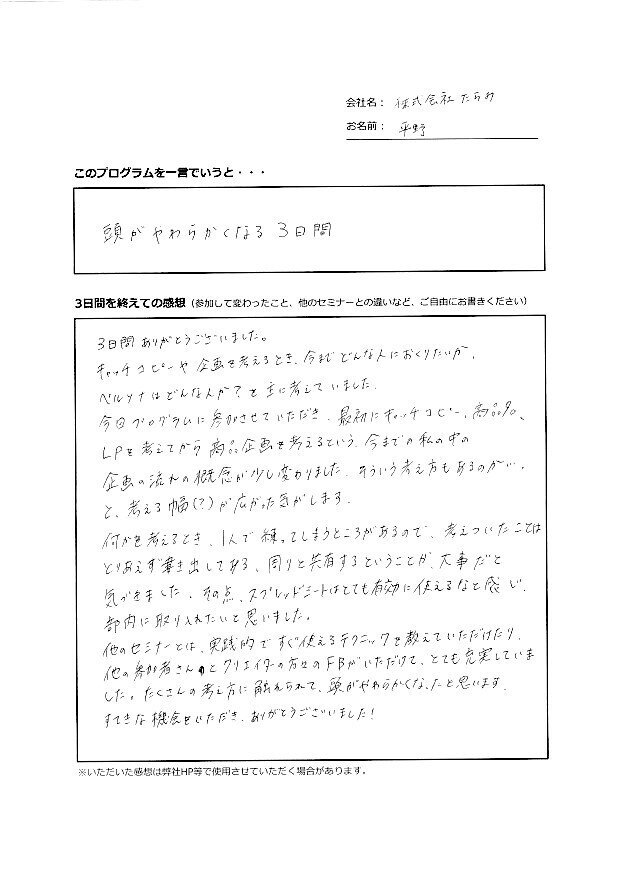 会社名： 株式会社たらみ
お名前： 平野
このプログラムを一言でいうと・・・
頭がやわらかくなる3日間
3日間を終えての感想（参加して変わったこと、他のセミナーとの違いなど、ご自由にお書きください）
3日間ありがとうございました。
キャッチコピーや企画を考えるとき、今まで どんな人におくりたいか、
ペルソナはどんな人か？と主に考えていました。
今日プログラムに参加させていただき、最初にキャッチコピー、商品名、
LPを考えてから商品企画を考えるという、今までの私の中の
企画の流れの概念が少し変わりました。そういう考え方もあるのか…
と、考える幅(?)が広がった気がします。
何かを考えるとき、1人で練ってしまうところがあるので、考えついたことは
とりあえず書き出してみる、周りと共有するということが、大事だと
気づきました。その点、スプレッドシートはとても有効に使えるなと感じ、
部内に取り入れたいと思いました。
他のセミナーとは、実践的ですぐ使えるテクニックを教えていただけたり、
他の参加者さんとクリエイターの方々のFBがいただけて、とても充実していま
した。たくさんの考え方に触れられて、頭がやわらかくなったと思います。
すてきな機会をいただき、ありがとうございました！
※いただいた感想は弊社HP等で使用させていただく場合があります。